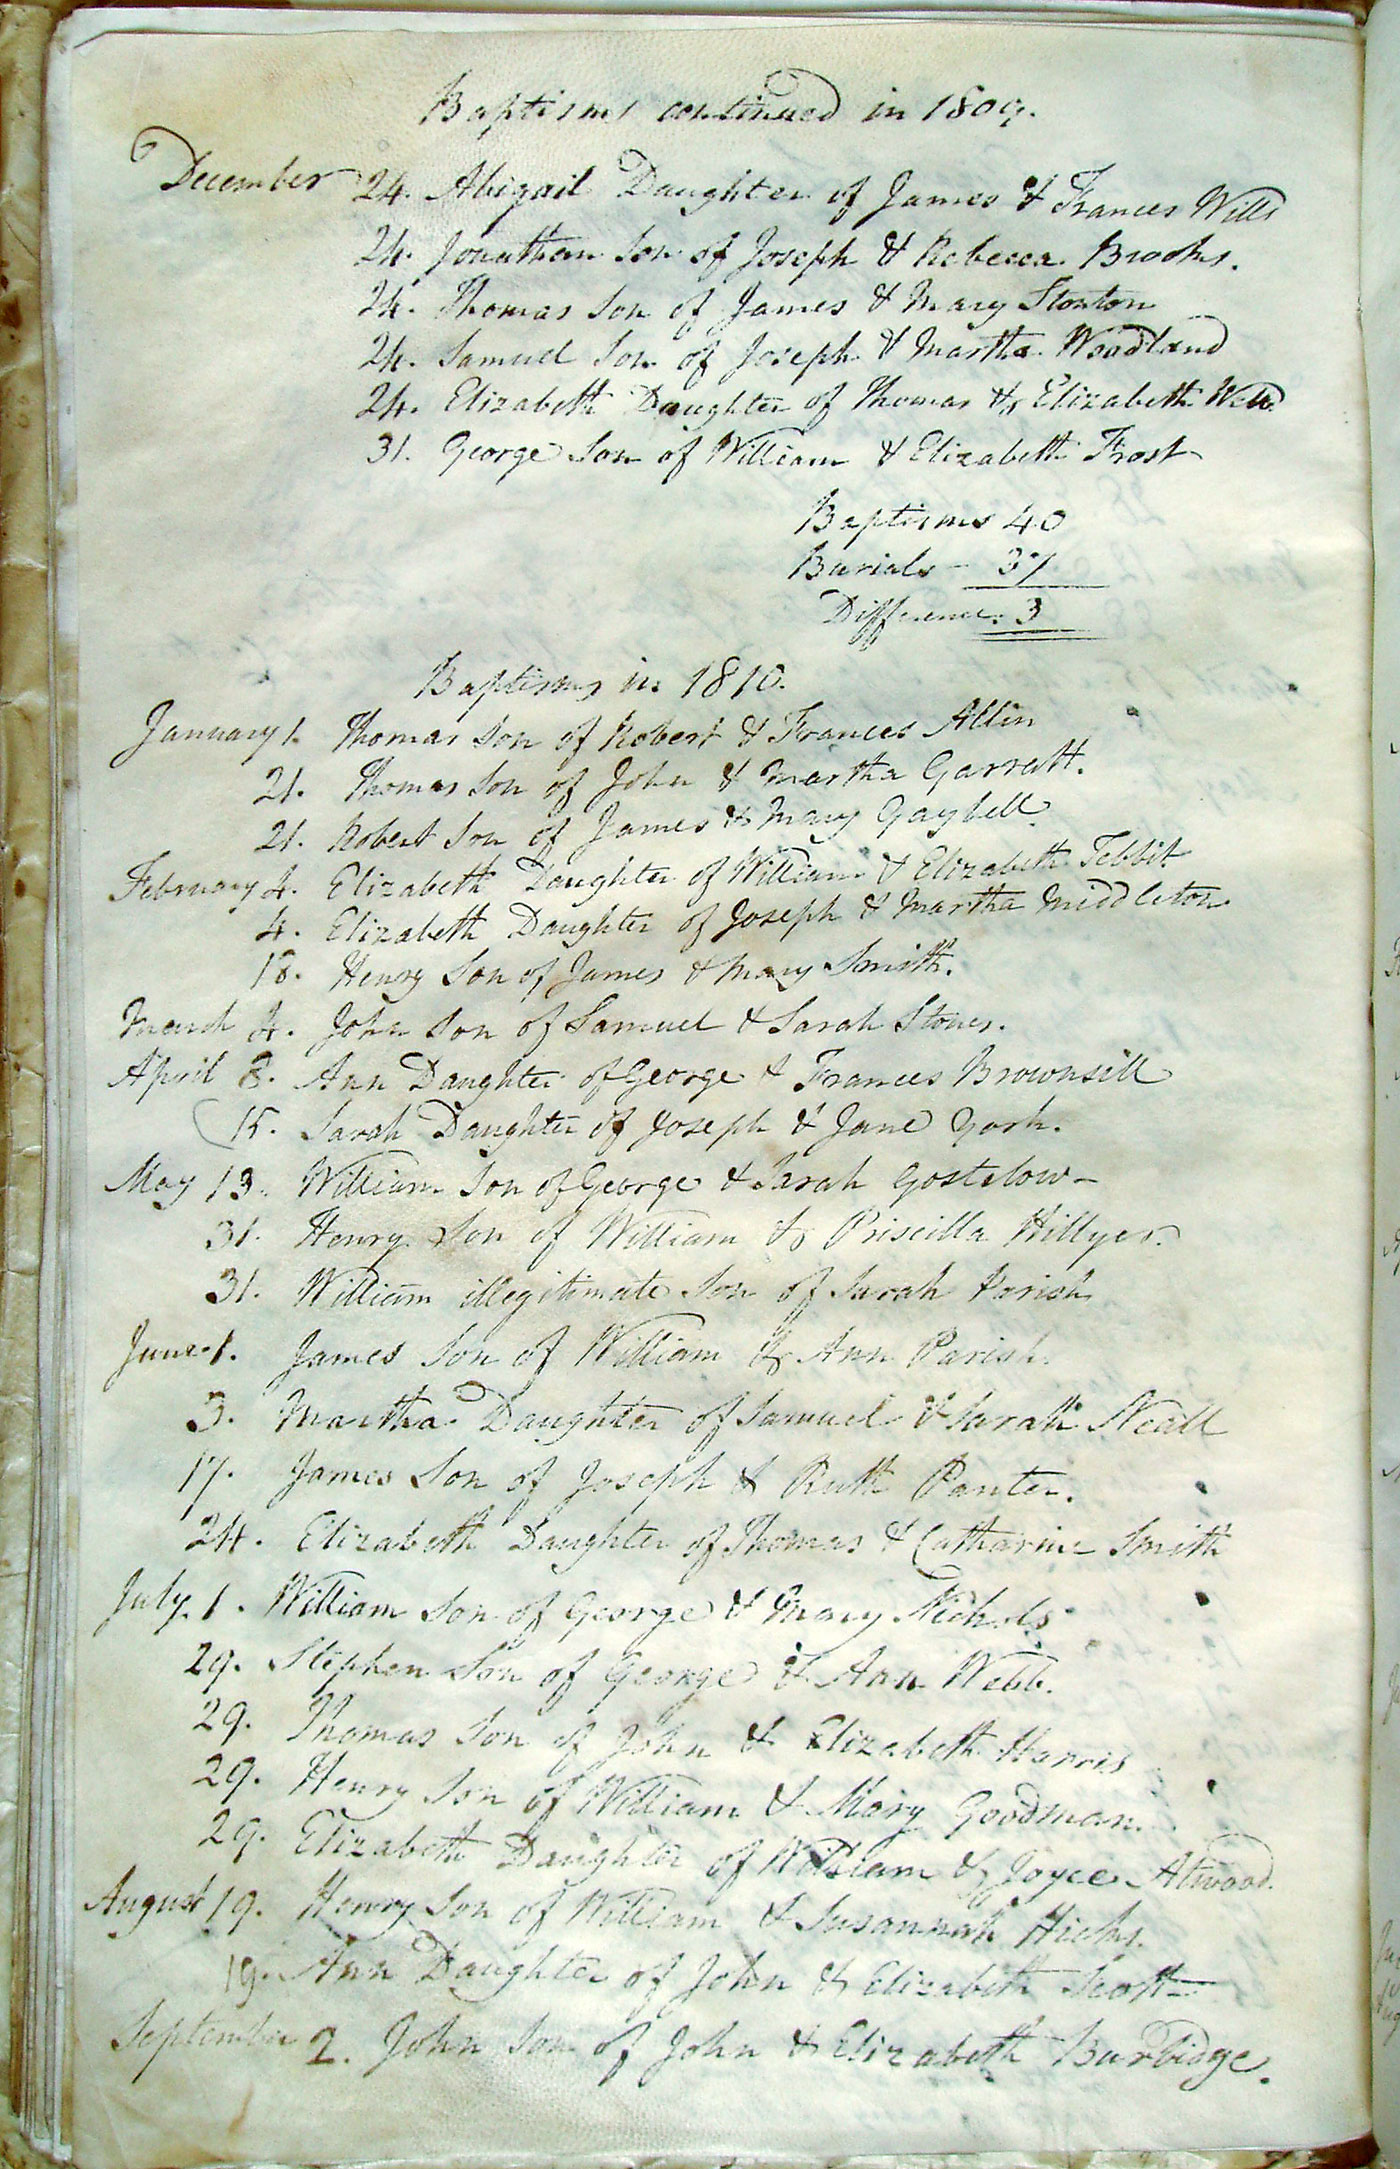 Baptisms continued in 1809.
December 24. Abigail Daughter of James & Frances Wills
24. Jonathan Son of Joseph & Rebecca Brooks.
24. Thomas Son of James & Mary Stonton
24. Samuel Son of Joseph & Martha Woodland
24. Elizabeth Daughter of Thomas & Elizabeth
31. George Son of William & Elizabeth Frost
Baptisms 40
Burials - 37
Difference. 3
Baptisms in 1810.
January 1. Thomas Son of Robert & Frances Allin
21. Thomas Son of John & Martha Garratt.
21. Robert Son of James & Mary Gaybell.
February 4. Elizabeth Daughter of William & Elizabeth Tebbit
4. Elizabeth Daughter of Joseph & Martha Middleton
18. Henry Son of James & Mary Smith.
March 4. John Son of Samuel & Sarah Stones.
April 8. Ann Daughter of George & Frances Brownsill
15. Sarah Daughter of Joseph & Jane York.
May 13. William Son of George & Sarah Gostelow -
31. Henry Son of William & Priscilla Hillyer.
31. William illegitimate Son of Sarah Parish
June 1. James Son of William & Ann Parish.
3. Martha Daughter of Samuel & Sarah Neall
17. James Son of Joseph & Ruth Panter.
24. Elizabeth Daughter of Thomas & Catharine Smith
July 1. William Son of George & Mary Nichols
29. Stephen Son of George & Ann Webb.
29. Thomas Son of John & Elizabeth Harris
29. Henry Son of William & Mary Goodman.
29. Elizabeth Daughter of William & Joyce Atwood.
August 19. Henry Son of William & Susannah Hicks.
19. Ann Daughter of John & Elizabeth Scott
September 2. John Son of John & Elizabeth Burbidge.